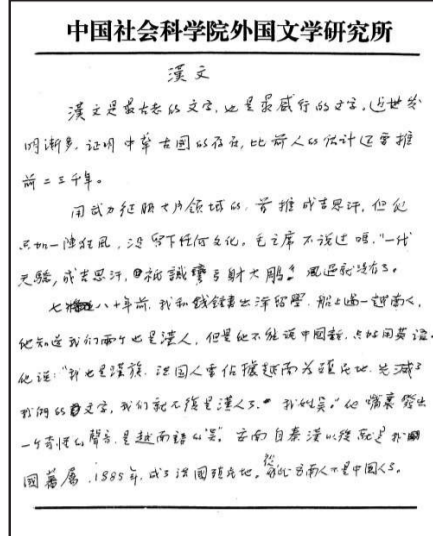 中国社会科学院外国文学研究所
漢文
漢文是最古老的文字,也是最盛行的文字,近世发
明漸多,证明中華古国的存在,比前人的估计还要推
前二三千年。
用武力征服大片领域的,首推成吉思汗,但他
只如一陣狂風,没留下任何文化。毛主席不说过吗,"一代
天驕,成吉思汗,祗識彎弓射大鵰",風过就没有了。
七八十年前,我和錢鍾書出洋留學,船上遇一越南人,
他知道我们兩个也是漢人,但是他不能說中國話,只好用英語。
他说:"我也是漢族,法国人要佔據越南为殖民地,先滅了
我們的文字,我们就不復是漢人了。我姓吴。"他嘴裏發出
一个奇怪的聲音,是越南語的"吴"。安南自秦漢以後就是我
國藩屬,1885年,成了法國殖民地。從此安南人不是中國人了。